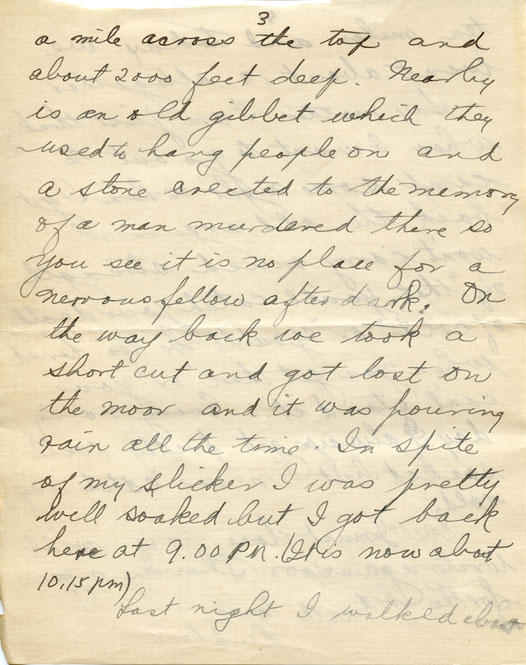 3
a mile across the top and
about 2000 feet deep. Nearby
is an old gibbet which they
used to hang people on and
a stone erected to the memory
of a man murdered there so
you see it is no place for a
nervous fellow after dark. On
the way back we took a
short cut and got lost on
the moor and it was pouring
rain all the time. In spite
of my slicker I was pretty
well soaked but I got back
here at 9.00 PM. (It is now about
10.15 pm)
Last night I walked about